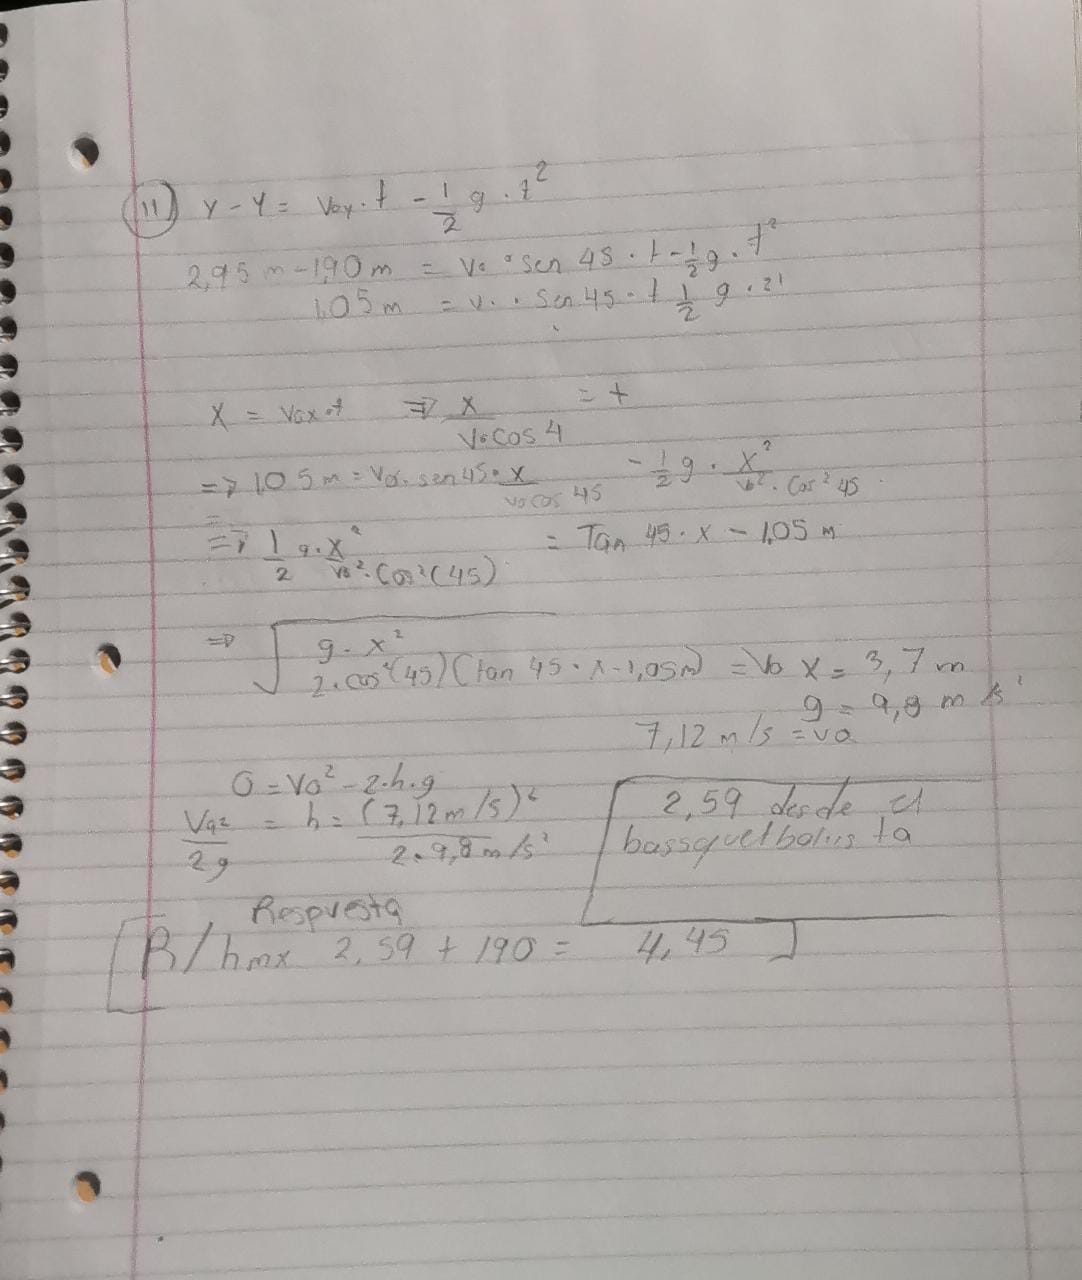 11) Y - Y = Voy . t - 1/2 g . t²
2,95 m - 1,90 m = Vo . sen 45 . t - 1/2 g . t²
1,05 m = v. . Sen 45 . t 1/2 g . 2'
X = Vox . t => X / Vo cos 4 = t
=> 1 05 m = Vo . sen 45 . x / vo cos 45 - 1/2 g . x² / vo² . Cos² 45
=
=> 1/2 g . x² / vo² . Cos² (45) = Tan 45 . x - 1,05 m
=> √ g . x² / 2 . cos² (45) (tan 45 . x - 1,05 m) = Vo X = 3,7 m
g = 9,8 m/s²
7,12 m/s = vo
0 = Vo² - 2.h.g
Vo² / 2g = h = (7,12 m/s)² / 2 . 9,8 m/s²
2,59 desde el
bassquetbolista
Respuesta
R/ hmx 2,59 + 190 = 4,45